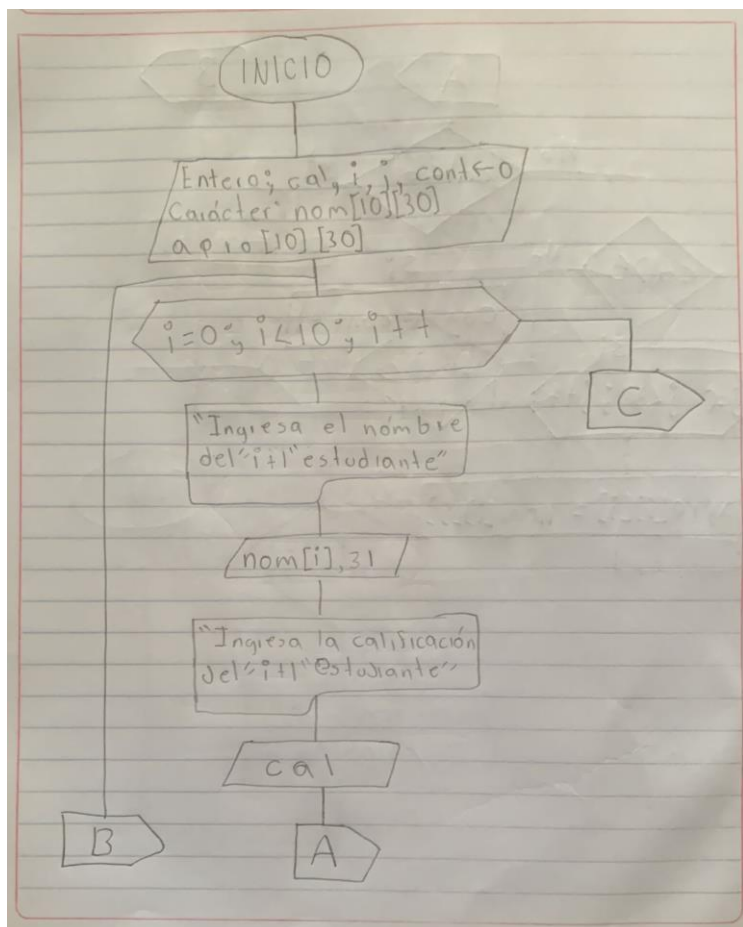 INICIO
Entero; cal, i, j, cont←0
Carácter nom[10][30]
apro[10][30]
i=0; i<10; i++
C
"Ingresa el nombre
del" i+1 "estudiante"
nom[i], 31
"Ingresa la calificación
del" i+1 "estudiante"
cal
B
A